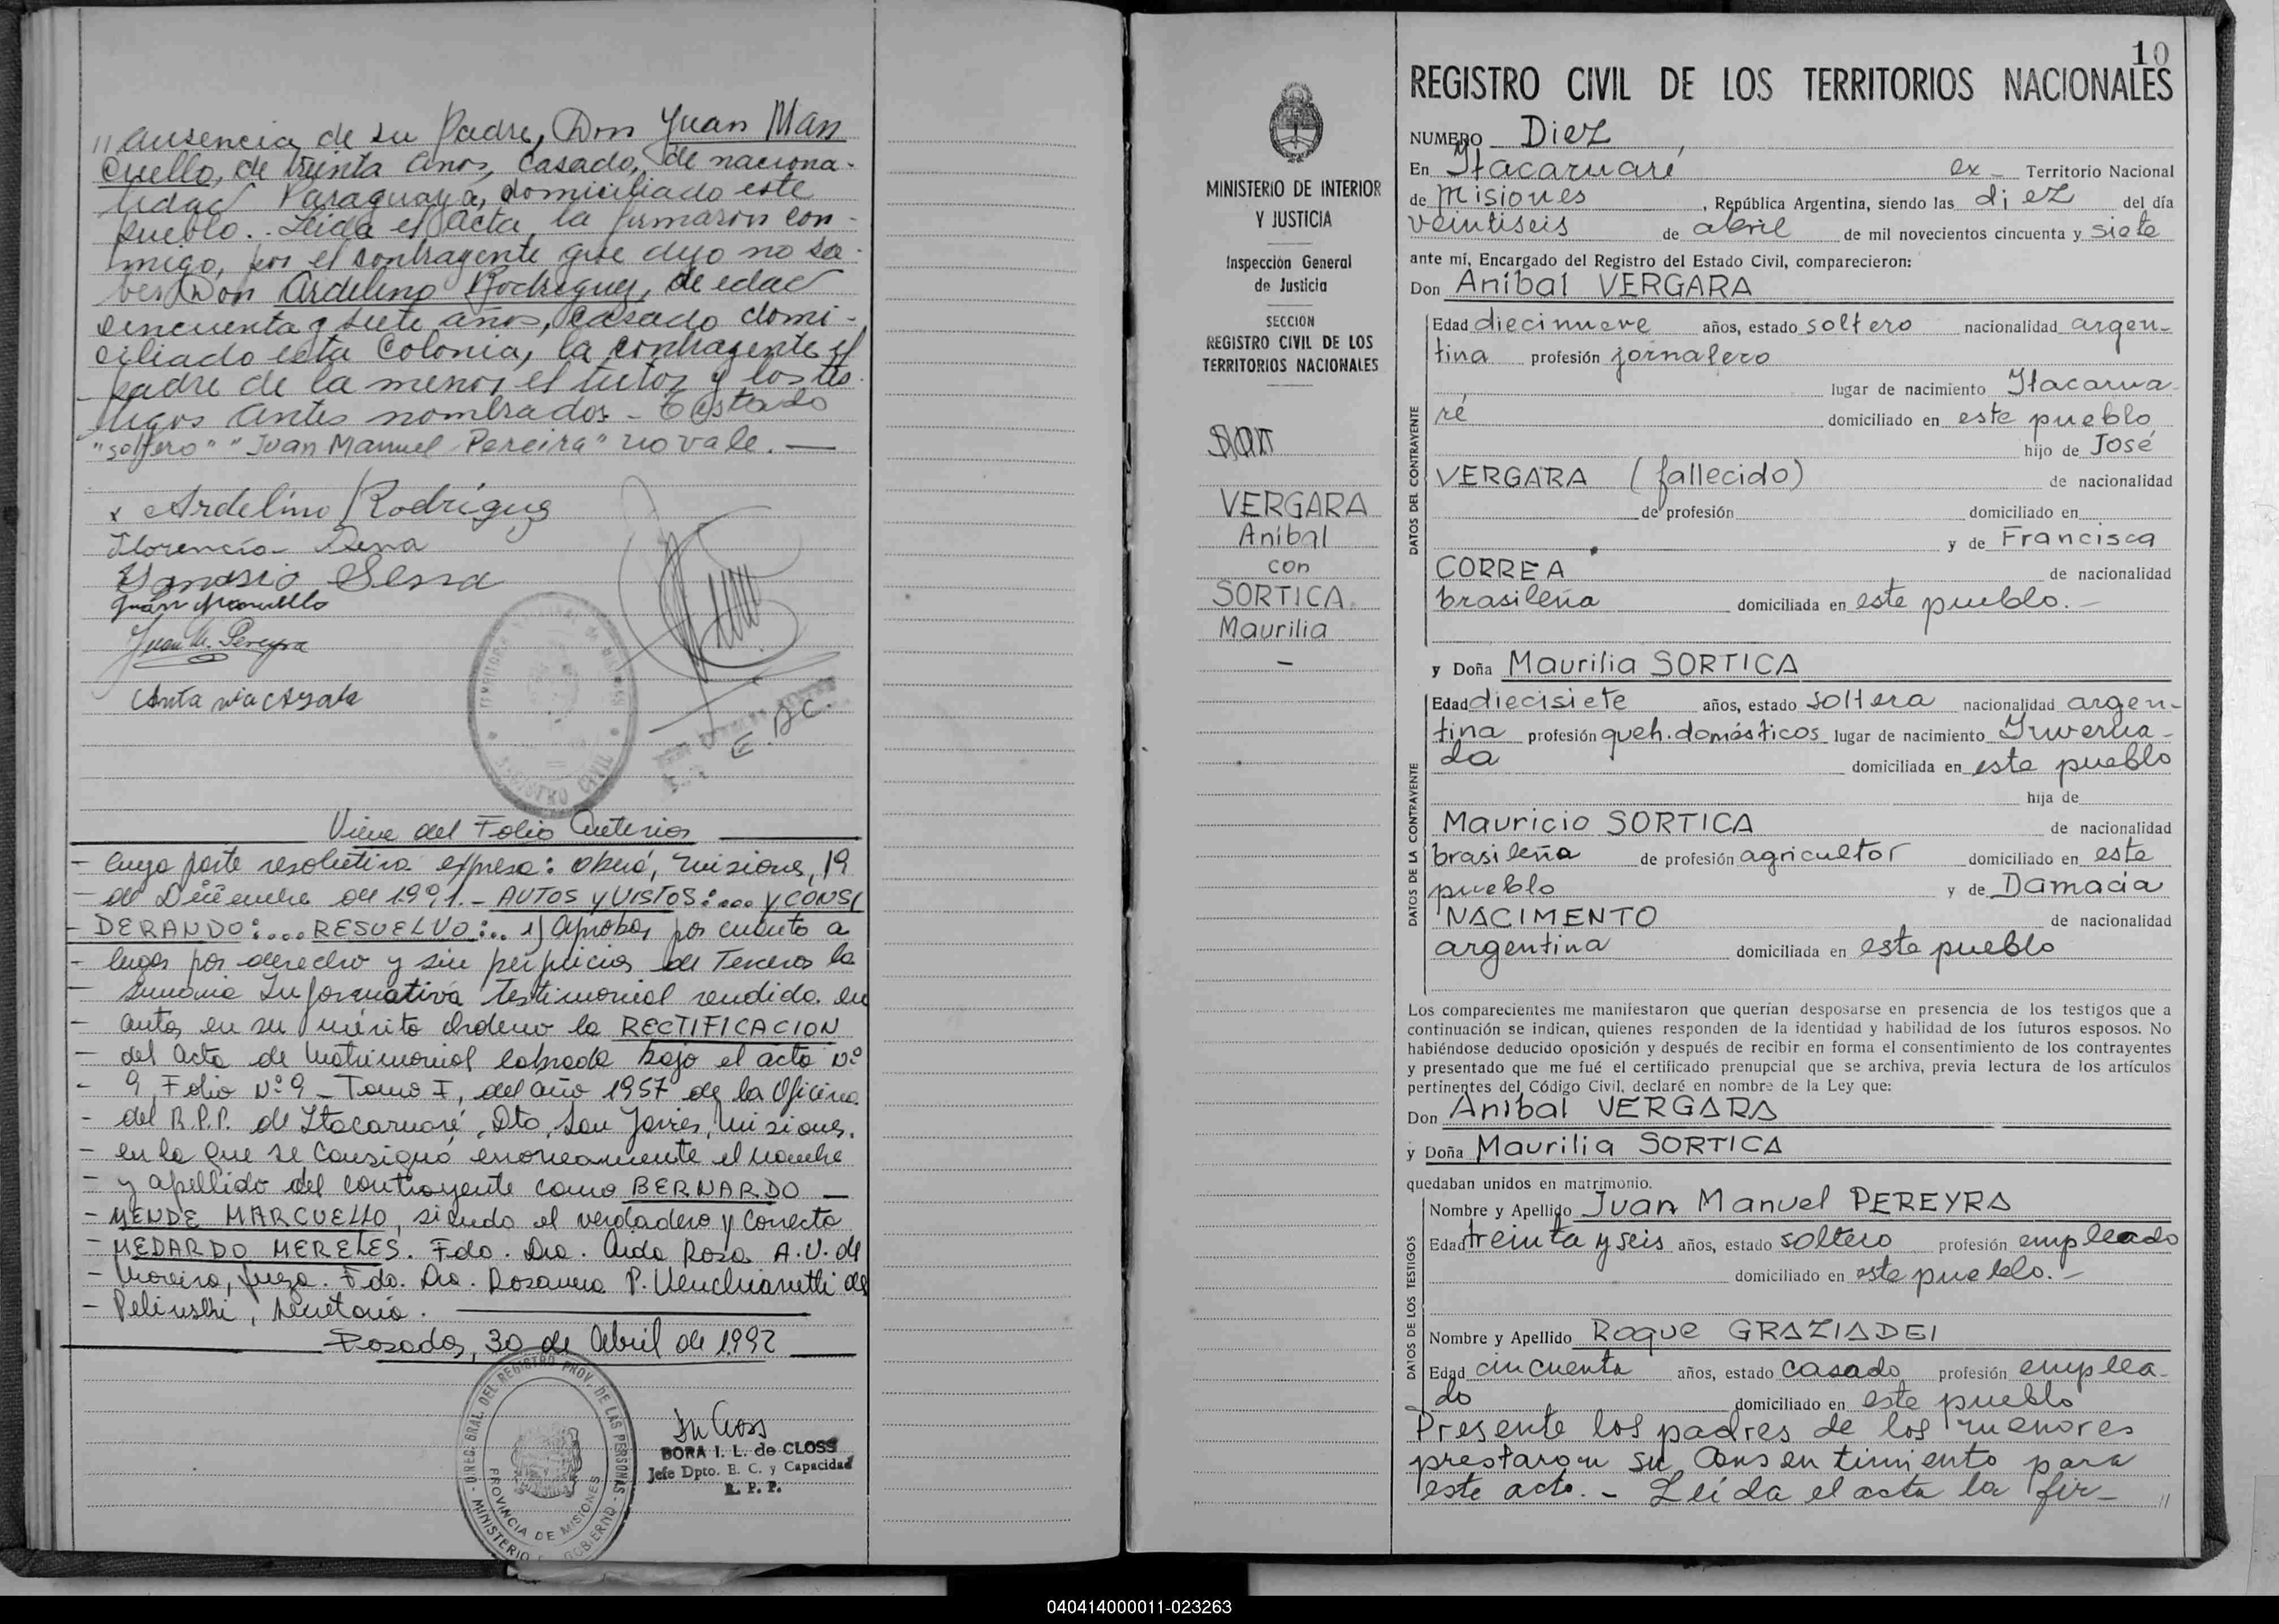 // ausencia de su Padre, Don Juan Mar
cuello, de treinta años, casado, de naciona-
lidad Paraguaya, domiciliado este
pueblo.. Leida el acta, la firmaron con-
migo, por el contrayente que dijo no sa-
ber Don Ardelino Rodriguez, de edad
cincuenta y siete años, casado domi-
ciliado esta Colonia, la contrayente el
padre de la menor, el tutor y los tes-
tigos antes nombrados - Testado
"soltero" "Juan Manuel Pereira" no vale. —
x Ardelino Rodriguez
Florencio
Juan Marcuello
Juan M. Pereyra
E. R. C.
REGISTRO CIVIL
Viene del Folio Anterior
- cuya parte resolutiva expresa: Oberá, Misiones, 19
- de Diciembre de 1991.- AUTOS y VISTOS:... y CONSI
- DERANDO:... RESUELVO:.. 1) Aprobar por cuanto a
- lugar por derecho y sin perjuicios de Terceros la
- Sumaria Informativa Testimonial rendida en
- autos, en su mérito Ordeno la RECTIFICACION
- del acta de Matrimonial labrada bajo el acta Nº
- 9, Folio Nº 9 - Tomo I, del año 1957 de la Oficina
- del R.P.P. de Itacaruaré, Dto, San Javier, Misiones.
- en la que se consignó erroneamente el nombre
- y apellido del contrayente como BERNARDO —
- MENDE MARCUELLO, siendo el verdadero y correcto
- MEDARDO MERELES. Fdo. Dra. Aida Rosa A.V. de
- Moreira, Jueza. Fdo. Dra. Rosanna P. Venchiarutti de
- Pelinski, Secretaria.
Posadas, 30 de Abril de 1992
DIREC. GRAL. DEL REGISTRO PROV. DE LAS PERSONAS
PROVINCIA DE MISIONES
MINISTERIO DE GOBIERNO
DORA I. L. de CLOSS
Jefe Dpto. E. C. y Capacidad
R. P. P.
MINISTERIO DE INTERIOR
Y JUSTICIA
Inspección General
de Justicia
SECCION
REGISTRO CIVIL DE LOS
TERRITORIOS NACIONALES
VERGARA
Aníbal
con
SORTICA
Maurilia
—
10
REGISTRO CIVIL DE LOS TERRITORIOS NACIONALES
NUMERO Diez
En Itacaruaré ex- Territorio Nacional
de Misiones, República Argentina, siendo las diez del día
veintiseis de abril de mil novecientos cincuenta y siete
ante mí, Encargado del Registro del Estado Civil, comparecieron:
Don Aníbal VERGARA
DATOS DEL CONTRAYENTE
Edad diecinueve años, estado soltero nacionalidad argen-
tina profesión jornalero
lugar de nacimiento Itacarua-
ré domiciliado en este pueblo
hijo de José
VERGARA (fallecido) de nacionalidad
de profesión domiciliado en
y de Francisca
CORREA de nacionalidad
brasileña domiciliada en este pueblo.-
y Doña Maurilia SORTICA
DATOS DE LA CONTRAYENTE
Edad diecisiete años, estado soltera nacionalidad argen-
tina profesión queh. domésticos lugar de nacimiento Inverna-
da domiciliada en este pueblo
hija de
Mauricio SORTICA de nacionalidad
brasileña de profesión agricultor domiciliado en este
pueblo y de Damacia
NACIMENTO de nacionalidad
argentina domiciliada en este pueblo
Los comparecientes me manifestaron que querían desposarse en presencia de los testigos que a
continuación se indican, quienes responden de la identidad y habilidad de los futuros esposos. No
habiéndose deducido oposición y después de recibir en forma el consentimiento de los contrayentes
y presentado que me fué el certificado prenupcial que se archiva, previa lectura de los artículos
pertinentes del Código Civil, declaré en nombre de la Ley que:
Don Aníbal VERGARA
y Doña Maurilia SORTICA
quedaban unidos en matrimonio.
DATOS DE LOS TESTIGOS
Nombre y Apellido Juan Manuel PEREYRA
Edad treinta y seis años, estado soltero profesión empleado
domiciliado en este pueblo.-
Nombre y Apellido Roque GRAZIADEI
Edad cincuenta años, estado casado profesión emplea-
do domiciliado en este pueblo
Presente los padres de los menores
prestaron su consentimiento para
este acto.- Leída el acta la fir- //
040414000011-023263